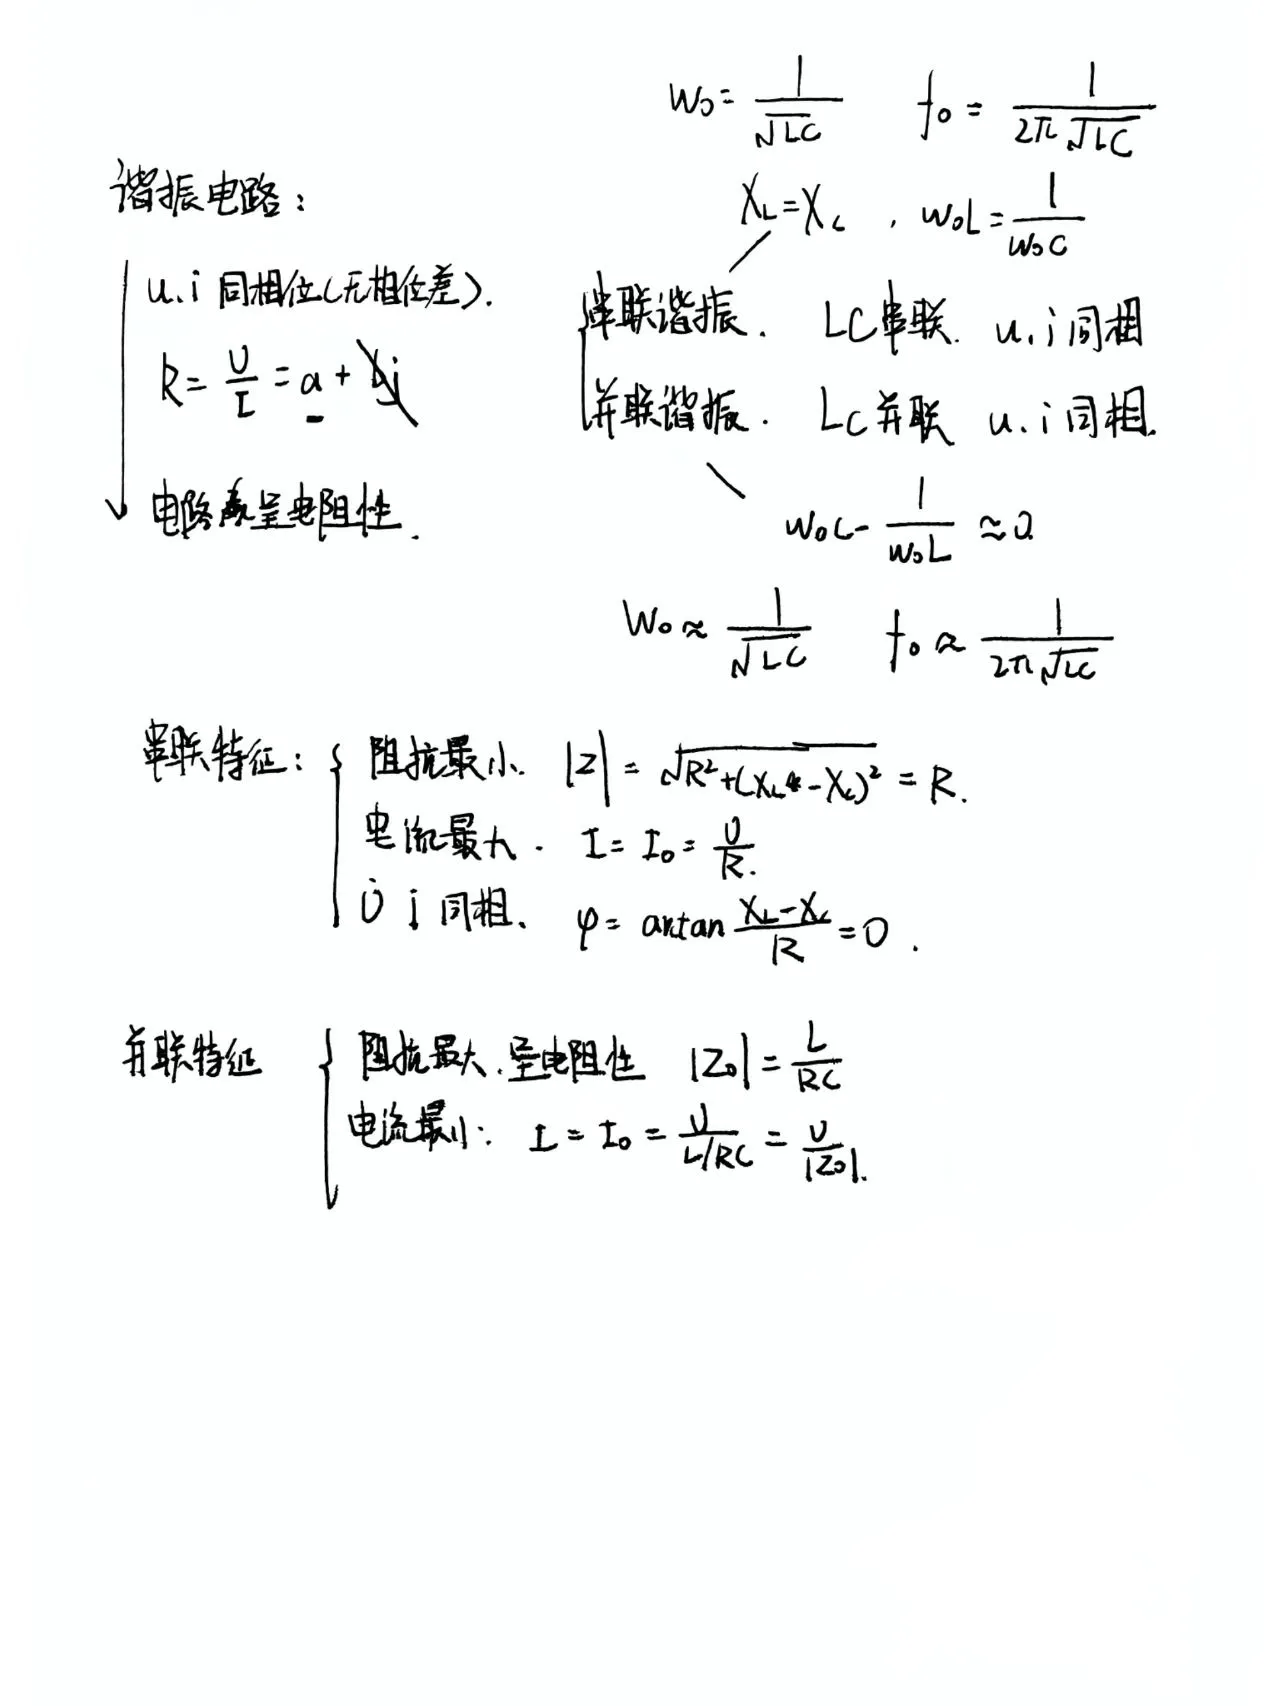 w₀ = 1/√LC   f₀ = 1/2π√LC
X_L = X_C , w₀L = 1/w₀C
谐振电路：
u.i 同相位(无相位差).
R = U/I = a + bj
电路呈电阻性.
串联谐振. LC串联. u.i同相
并联谐振. LC并联 u.i同相.
w₀C - 1/w₀L ≈ 0
w₀ ≈ 1/√LC   f₀ ≈ 1/2π√LC
串联特征： { 阻抗最小. |Z| = √R²+(X_L-X_C)² = R.
电流最大. I = I₀ = U/R.
U̇ İ 同相. φ = arctan X_L-X_C/R = 0 .
并联特征 { 阻抗最大.呈电阻性 |Z₀| = L/RC
电流最小： I = I₀ = U/L/RC = U/|Z₀|.